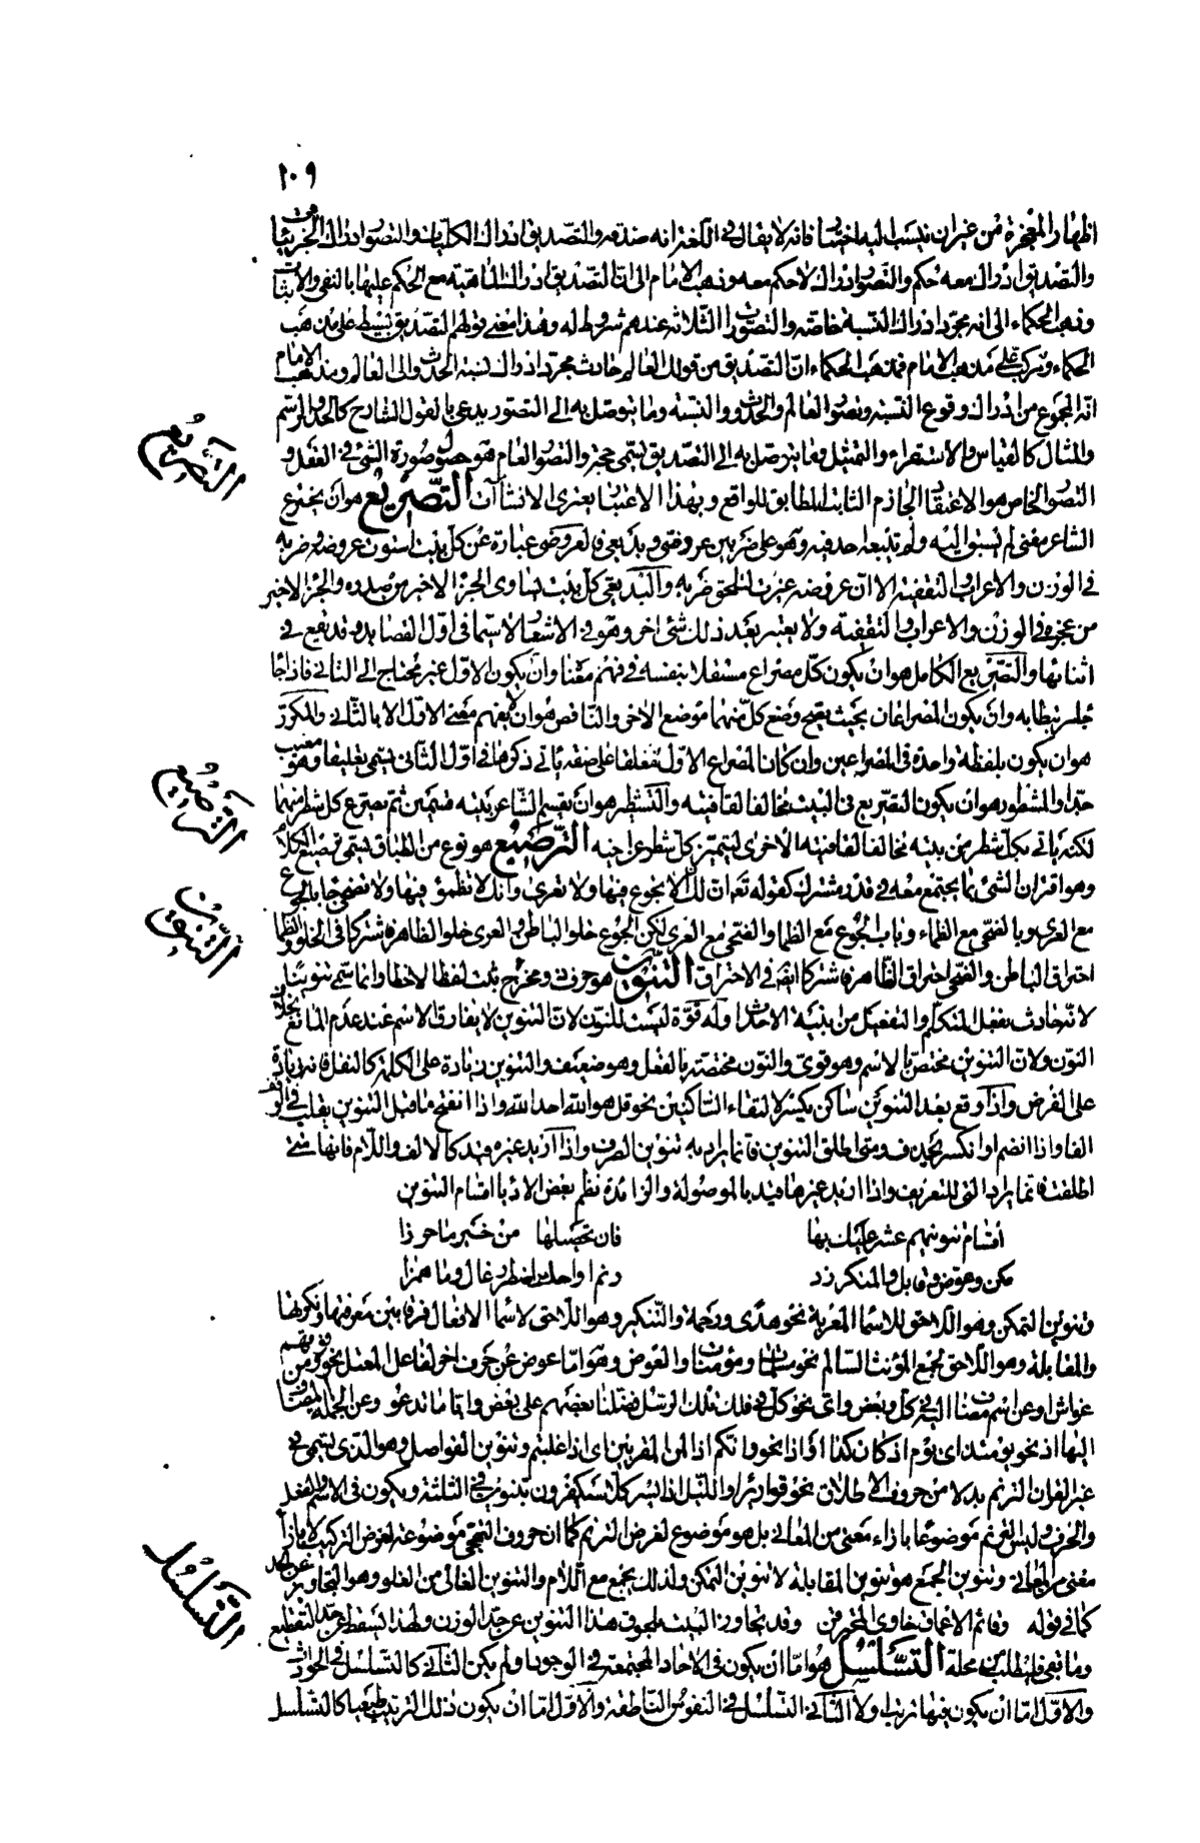 ١٠٩
اظهار المعجزة من غير ان ينسب اليه اختيارا فانه لا يقال في اللغة انه صدقه والتصديق ادراك الكليات والتصور ادراك الجزئيات
والتصديق ادراك معه حكم والتصور ادراك لا حكم معه وذهب الامام الى ان التصديق ادراك الماهية مع الحكم عليها بالنفي والاثبات
وذهب الحكماء الى انه مجرد ادراك النسبة خاصة والتصورات الثلاثة عندهم شروط له وهذا معنى قولهم التصديق بسيط على مذهب
الحكماء ومركب على مذهب الامام فمذهب الحكماء ان التصديق من قولك العالم حادث مجرد ادراك نسبة الحدوث الى العالم ومذهب الامام
انه المجموع من ادراك وقوع النسبة وتصور العالم والحدوث والنسبة وما يوصل به الى التصور يدعى بالقول الشارح كالحد والرسم
والمثال كالقياس والاستقراء والتمثيل وما يتوصل به الى التصديق يسمى حجة والتصور العام هو حصول صورة الشئ في العقل و
التصور الخاص هو الاعتقاد الجازم الثابت المطابق للواقع وبهذا الاعتبار يعترى الانشاآت التصريع هو ان يخترع
الشاعر معنى لم يسبق اليه ولم يتبعه احد فيه وهو على ضربين عروضي وبديعي فالعروضي عبارة عن كل بيت استوت عروضه وضربه
في الوزن والاعراب والتقفية الا ان عروضه غيرت لتلحق ضربه والبديعي كل بيت تساوى الجزء الاخير من صدره والجزء الاخير
من عجزه في الوزن والاعراب والتقفية ولا يعتبر بعد ذلك شئ اخر وهو في الاشعار لا سيما في اول القصايد وقد يقع في
اثنائها والتصريع الكامل هو ان يكون كل مصراع مستقلا بنفسه في فهم معناه وان يكون الاول غير محتاج الى الثاني فاذا جا
جاء مرتبطا به وان يكون المصراعان بحيث يصح وضع كل منهما موضع الاخر والناقص هو ان لا يفهم معنى الاول الا بالثاني والمكرر
هو ان يكون بلفظة واحدة في المصراعين وان كان المصراع الاول معلقا على صفة يأتي ذكرها في اول الثاني يسمى تعليقا وهو معيب
جدا والمشطور هو ان يكون التصريع في البيت مخالفا لقافيته والتشطير هو ان يقسم الشاعر بيته قسمين ثم يصرع كل شطر منهما
لكنه يأتي بكل شطر من بيته مخالفا لقافية الاخرى ليتميز كل شطر عن اخيه الترصيع هو نوع من الطباق يسمى ترصيع الكلام
وهو اقتران الشئ بما يجتمع معه في قدر مشترك كقوله تعالى ان لك الا تجوع فيها ولا تعرى وانك لا تظمؤ فيها ولا تضحى جا بالجوع
مع العرى وبالضحى مع الظماء وباب الجوع مع الظما والضحى مع العرى لكن الجوع خلو الباطن والعرى خلو الظاهر فاشتركا في الخلو والظما
احتراق الباطن والضحى احتراق الظاهر فاشتركا في الاحتراق التنوين هو حرف ذو مخرج يثبت لفظا لا خطا وانما سمى تنوينا
لانه حادث بفعل المتكلم والتفعيل من ابنية الاحداث وله قوة ليست للنون لان التنوين لا يفارق الاسم عند عدم المانع بخلاف
النون ولان التنوين مختص بالاسم وهو قوى والنون مختصة بالفعل وهو ضعيف والتنوين زيادة على الكلمة كالنفل فانه زيادة
على الفرض واذا وقع بعد التنوين ساكن يكسر لالتقاء الساكنين نحو قل هو الله احد الله واذا انفتح ما قبل التنوين يقلب في الوقف
الفا واذا انضم او انكسر يحذف ومتى اطلق التنوين فانما يراد به تنوين الصرف واذا اريد غيره قيد كالالف واللام فانها متى
اطلقت فانما يراد التي للتعريف واذا اريد غيرها قيد بالموصولة والزائدة نظم بعض الادبا اقسام التنوين
اقسام تنوينهم عشر عليك بها فان تحصيلها من خير ما حرزا
مكن وعوض وقابل والمنكر زد رنم او احك اضطرر غال وما همزا
وتنوين التمكن وهو اللاحق للاسماء المعربة نحو هدى ورحمة والتنكير وهو اللاحق لاسماء الافعال فرقا بين معرفتها ونكرتها
والمقابلة وهو اللاحق لجمع المؤنث السالم نحو مسلمات ومؤمنات والعوض وهو اما عوض عن حرف اخر لفاعل المعتل نحو ومن فوقهم
غواش او عن اسم مضاف اليه في كل وبعض واي نحو كل في فلك تلك الرسل فضلنا بعضهم على بعض وايا ما تدعو وعن الجملة المضاف
اليها اذ نحو يومئذ اى يوم اذ كان كذا او اذا نحو وانكم اذا لمن المقربين اى اذا غلبتم وتنوين الفواصل وهو الذى يسمى في
غير القران الترنم بدلا من حروف الاطلاق نحو قواريرا والليل اذا يسر كلا سيكفرون بتنوين في الثلثة ويكون في الاسم والفعل
والحرف وليس الترنم موضوعا بازاء معنى من المعاني بل هو موضوع لغرض الترنم كما ان حروف التهجي موضوعة لغرض التركيب لا بازاء
معنى من المعاني وتنوين الجمع هو تنوين المقابلة لا تنوين التمكن ولذلك يجتمع مع اللام والتنوين الغالي من الغلو وهو التجاوز عن الحد
كما في قوله وقاتم الاعماق خاوى المخترقن وقد تجاوز البيت بلحوق هذا التنوين عن حد الوزن ولهذا يسقط عن حد التقطيع
وما بقي فليطلب في محله التسلسل هو اما ان يكون في الاحاد المجتمعة في الوجود او لم يكن الثاني كالتسلسل في الحوادث
والاول اما ان يكون فيها ترتيب او لا الثاني التسلسل في النفوس الناطقة والاول اما ان يكون ذلك الترتيب طبيعيا كالتسلسل
التصريع
الترصيع
التنوين
التسلسل